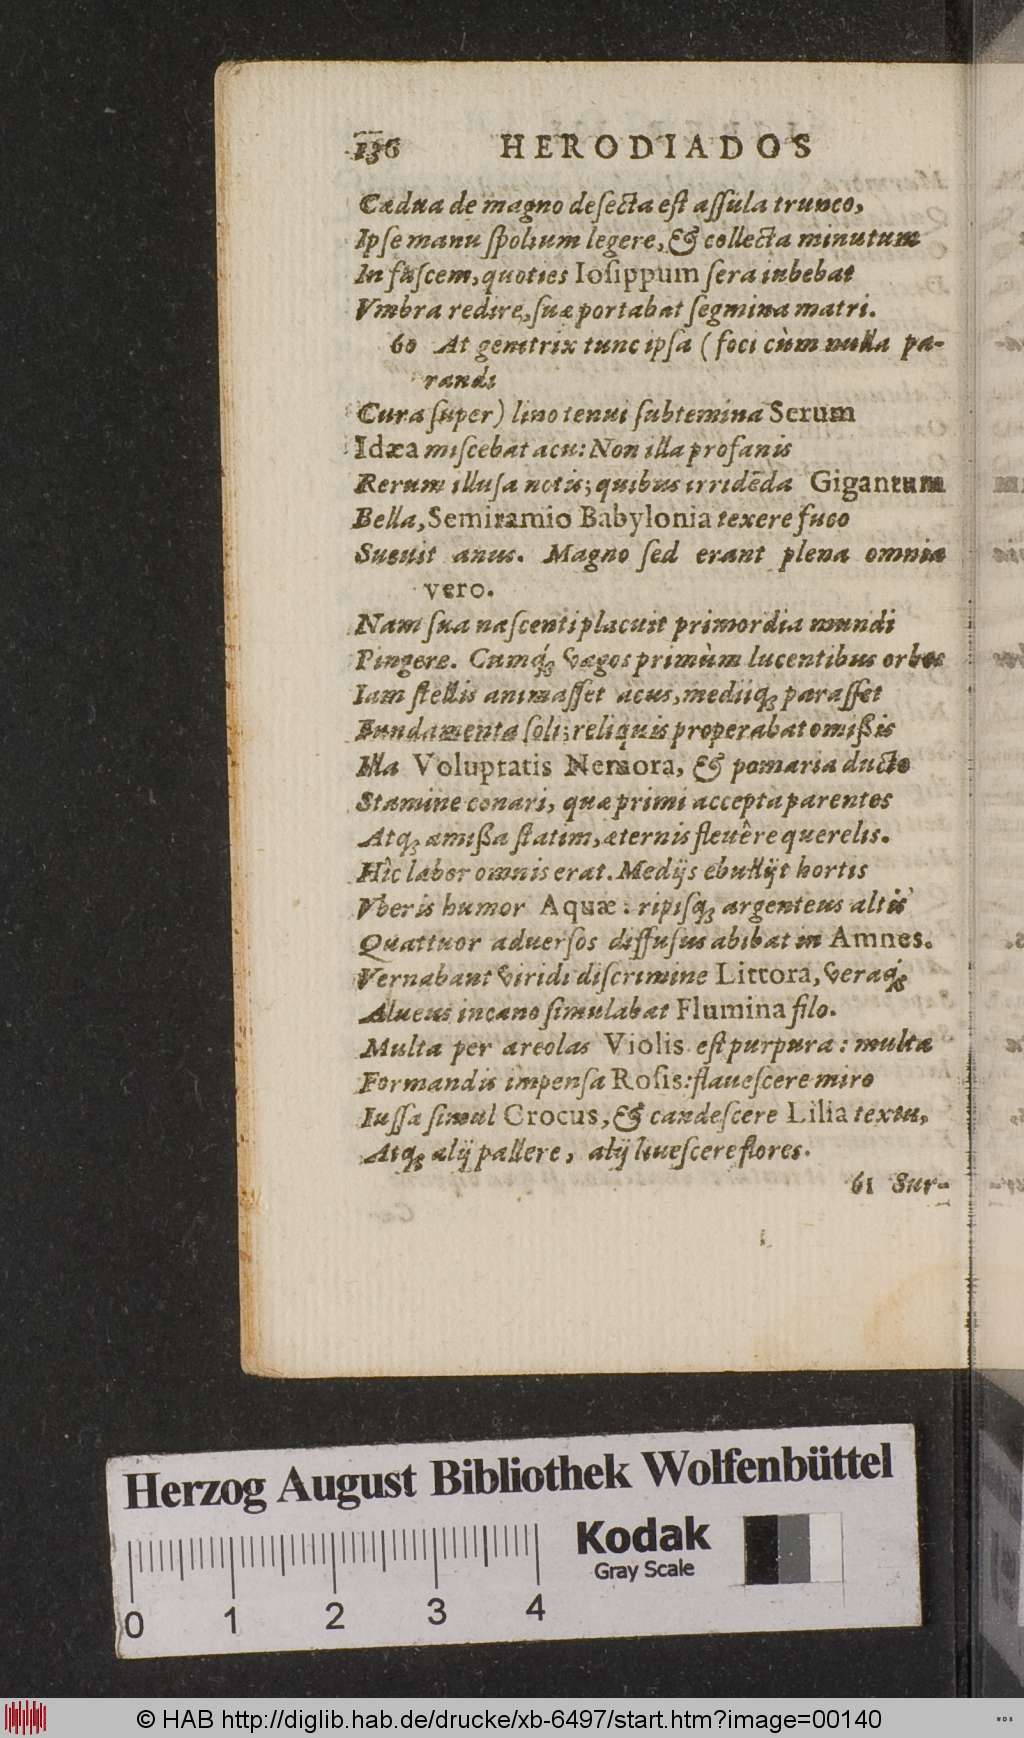 136 HERODIADOS
Cædua de magno desecta est assula trunco,
Ipse manu spolium legere, & collecta minutum
In fascem, quoties Iosippum sera iubebat
Vmbra redire, suæ portabat segmina matri.
60 At genitrix tunc ipsa (foci cùm nulla pa-
randi
Cura super) lino tenui subtemina Serum
Idæa miscebat acu: Non illa profanis
Rerum illusa notis; quibus irridẽda Gigantum
Bella, Semiramio Babylonia texere fuco
Sueuit anus. Magno sed erant plena omnia
vero.
Nam sua nascenti placuit primordia mundi
Pingere. Cumq́; vagos primùm lucentibus orbes
Iam stellis animasset acus, mediiq; parasset
Fundamenta soli; reliquis properabat omißis
Illa Voluptatis Nemora, & pomaria ducto
Stamine conari, quæ primi accepta parentes
Atq; amißa statim, æternis fleuêre querelis.
Hîc labor omnis erat. Medijs ebullijt hortis
Vberis humor Aquæ: ripisq; argenteus altis
Quattuor aduersos diffusus abibat in Amnes.
Vernabant viridi discrimine Littora, veraq́;
Alueus incano simulabat Flumina filo.
Multa per areolas Violis est purpura: multa
Formandis impensa Rosis: flauescere miro
Iussa simul Crocus, & candescere Lilia textu,
Atq; alij pallere, alij liuescere flores.
61 Sur-
Herzog August Bibliothek Wolfenbüttel
Kodak
Gray Scale
0 1 2 3 4
© HAB http://diglib.hab.de/drucke/xb-6497/start.htm?image=00140